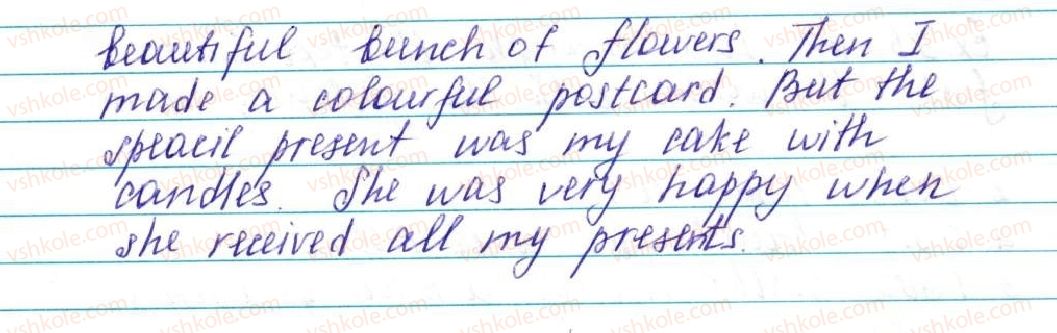 beautiful bunch of flowers. Then I
made a colourful postcard. But the
speacil present was my cake with
candles. She was very happy when
she received all my presents.